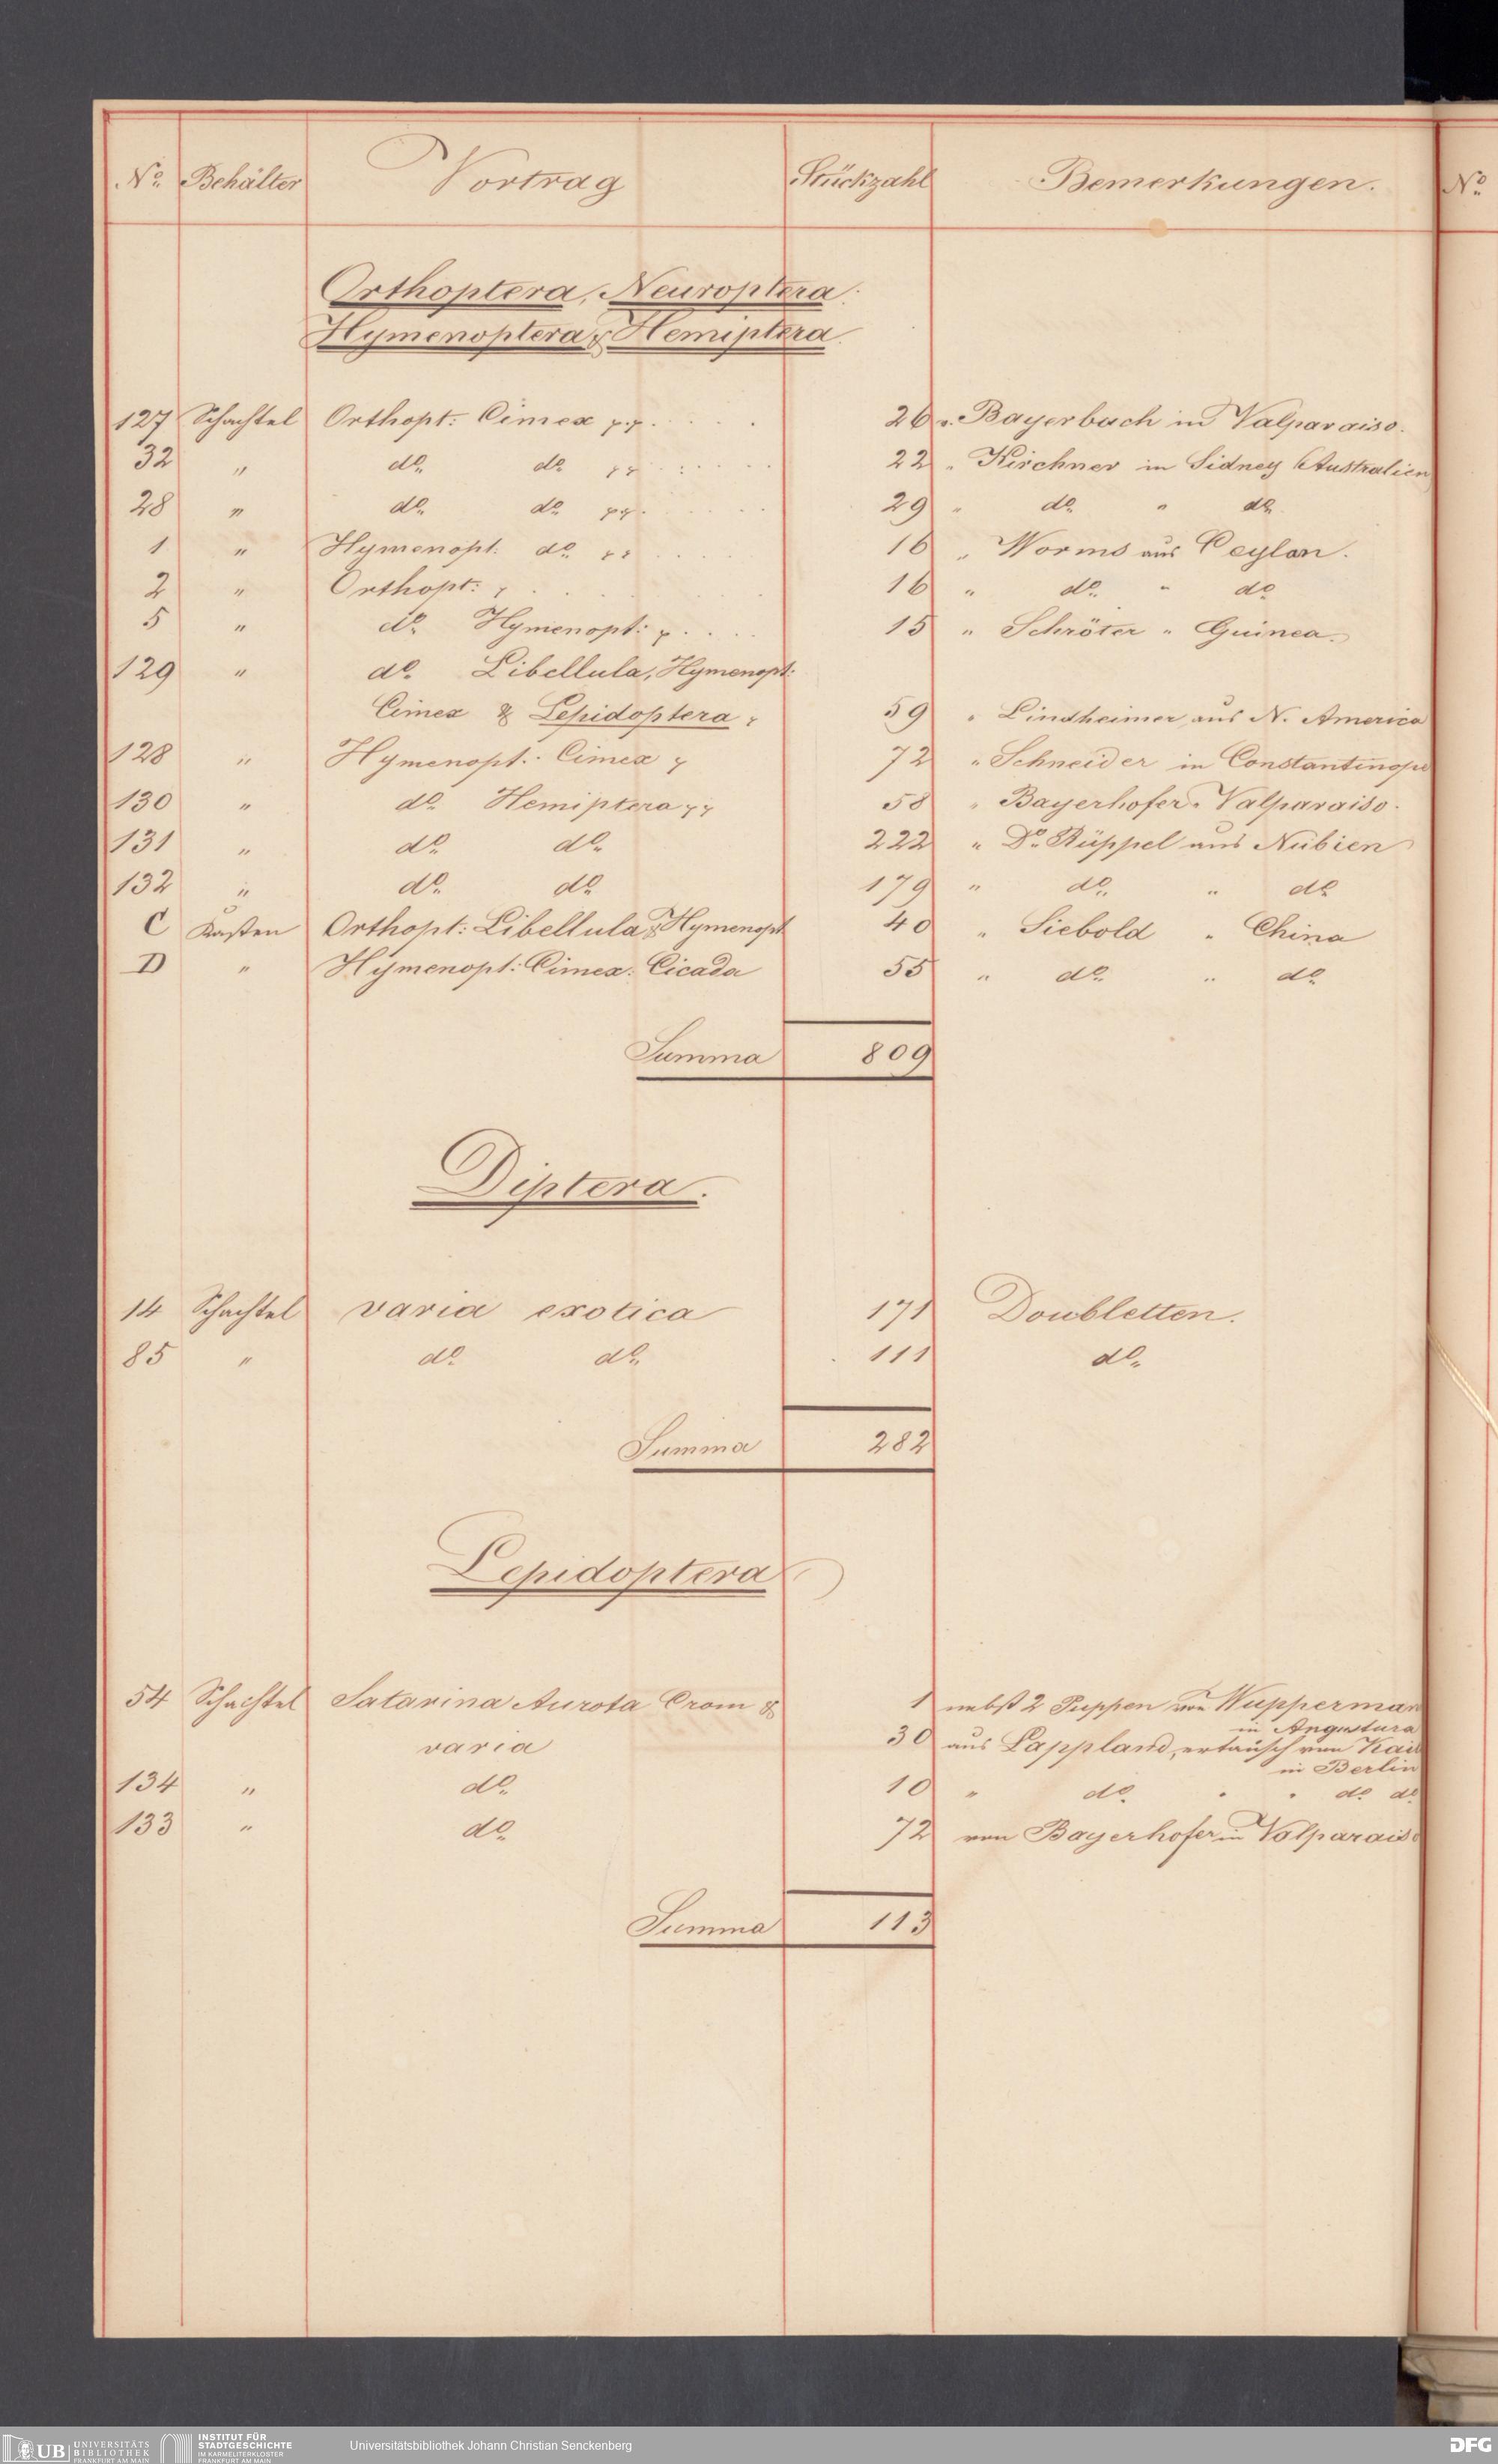 No. Behälter Vortrag Stückzahl Bemerkungen. No.
Orthoptera, Neuroptera
Hymenoptera & Hemiptera.
127 Schachtel Orthopt: Cimex pp. . . . . 26 v. Bayerbach in Valparaiso.
32 " do. do. . . . . 22 " Kirchner in Sidney Australien
28 " do. do. pp. . . . . 29 " do. " do.
1 " Hymenopt: do. . . . . 16 " Worms aus Ceylon.
2 " Orthopt: . . . . 16 " do. " do.
5 " do. Hymenopt: . . . . 15 " Schröter " Guinea.
129 " do. Libellula, Hymenopt:
Cimex & Lepidoptera 59 " Lindheimer aus N. America
128 " Hymenopt: Cimex 72 " Schneider in Constantinopel
130 " do. Hemiptera 58 " Bayerhofer " Valparaiso.
131 " do. do. 222 " Dr. Rüppel aus Nubien
132 " do. do. 179 " do. " do.
C Kasten Orthopt: Libellula & Hymenopt 40 " Siebold " China
D " Hymenopt: Cimex: Cicada 55 " do. " do.
Summa 809
Diptera.
14 Schachtel varia exotica 171 Doubletten.
85 " do. do. 111 do.
Summa 282
Lepidoptera
54 Schachtel Satarina Aurota Cram & 1 nebst 2 Puppen von Wupperman
in Angustura
varia 30 aus Lappland, ertausch von
in Berlin
134 " do. 10 " do. " " do. do.
133 " do. 72 von Bayerhofer in Valparaiso
Summa 113
UB UNIVERSITÄTS
BIBLIOTHEK
FRANKFURT AM MAIN
INSTITUT FÜR
STADTGESCHICHTE
IM KARMELITERKLOSTER
FRANKFURT AM MAIN
Universitätsbibliothek Johann Christian Senckenberg
DFG